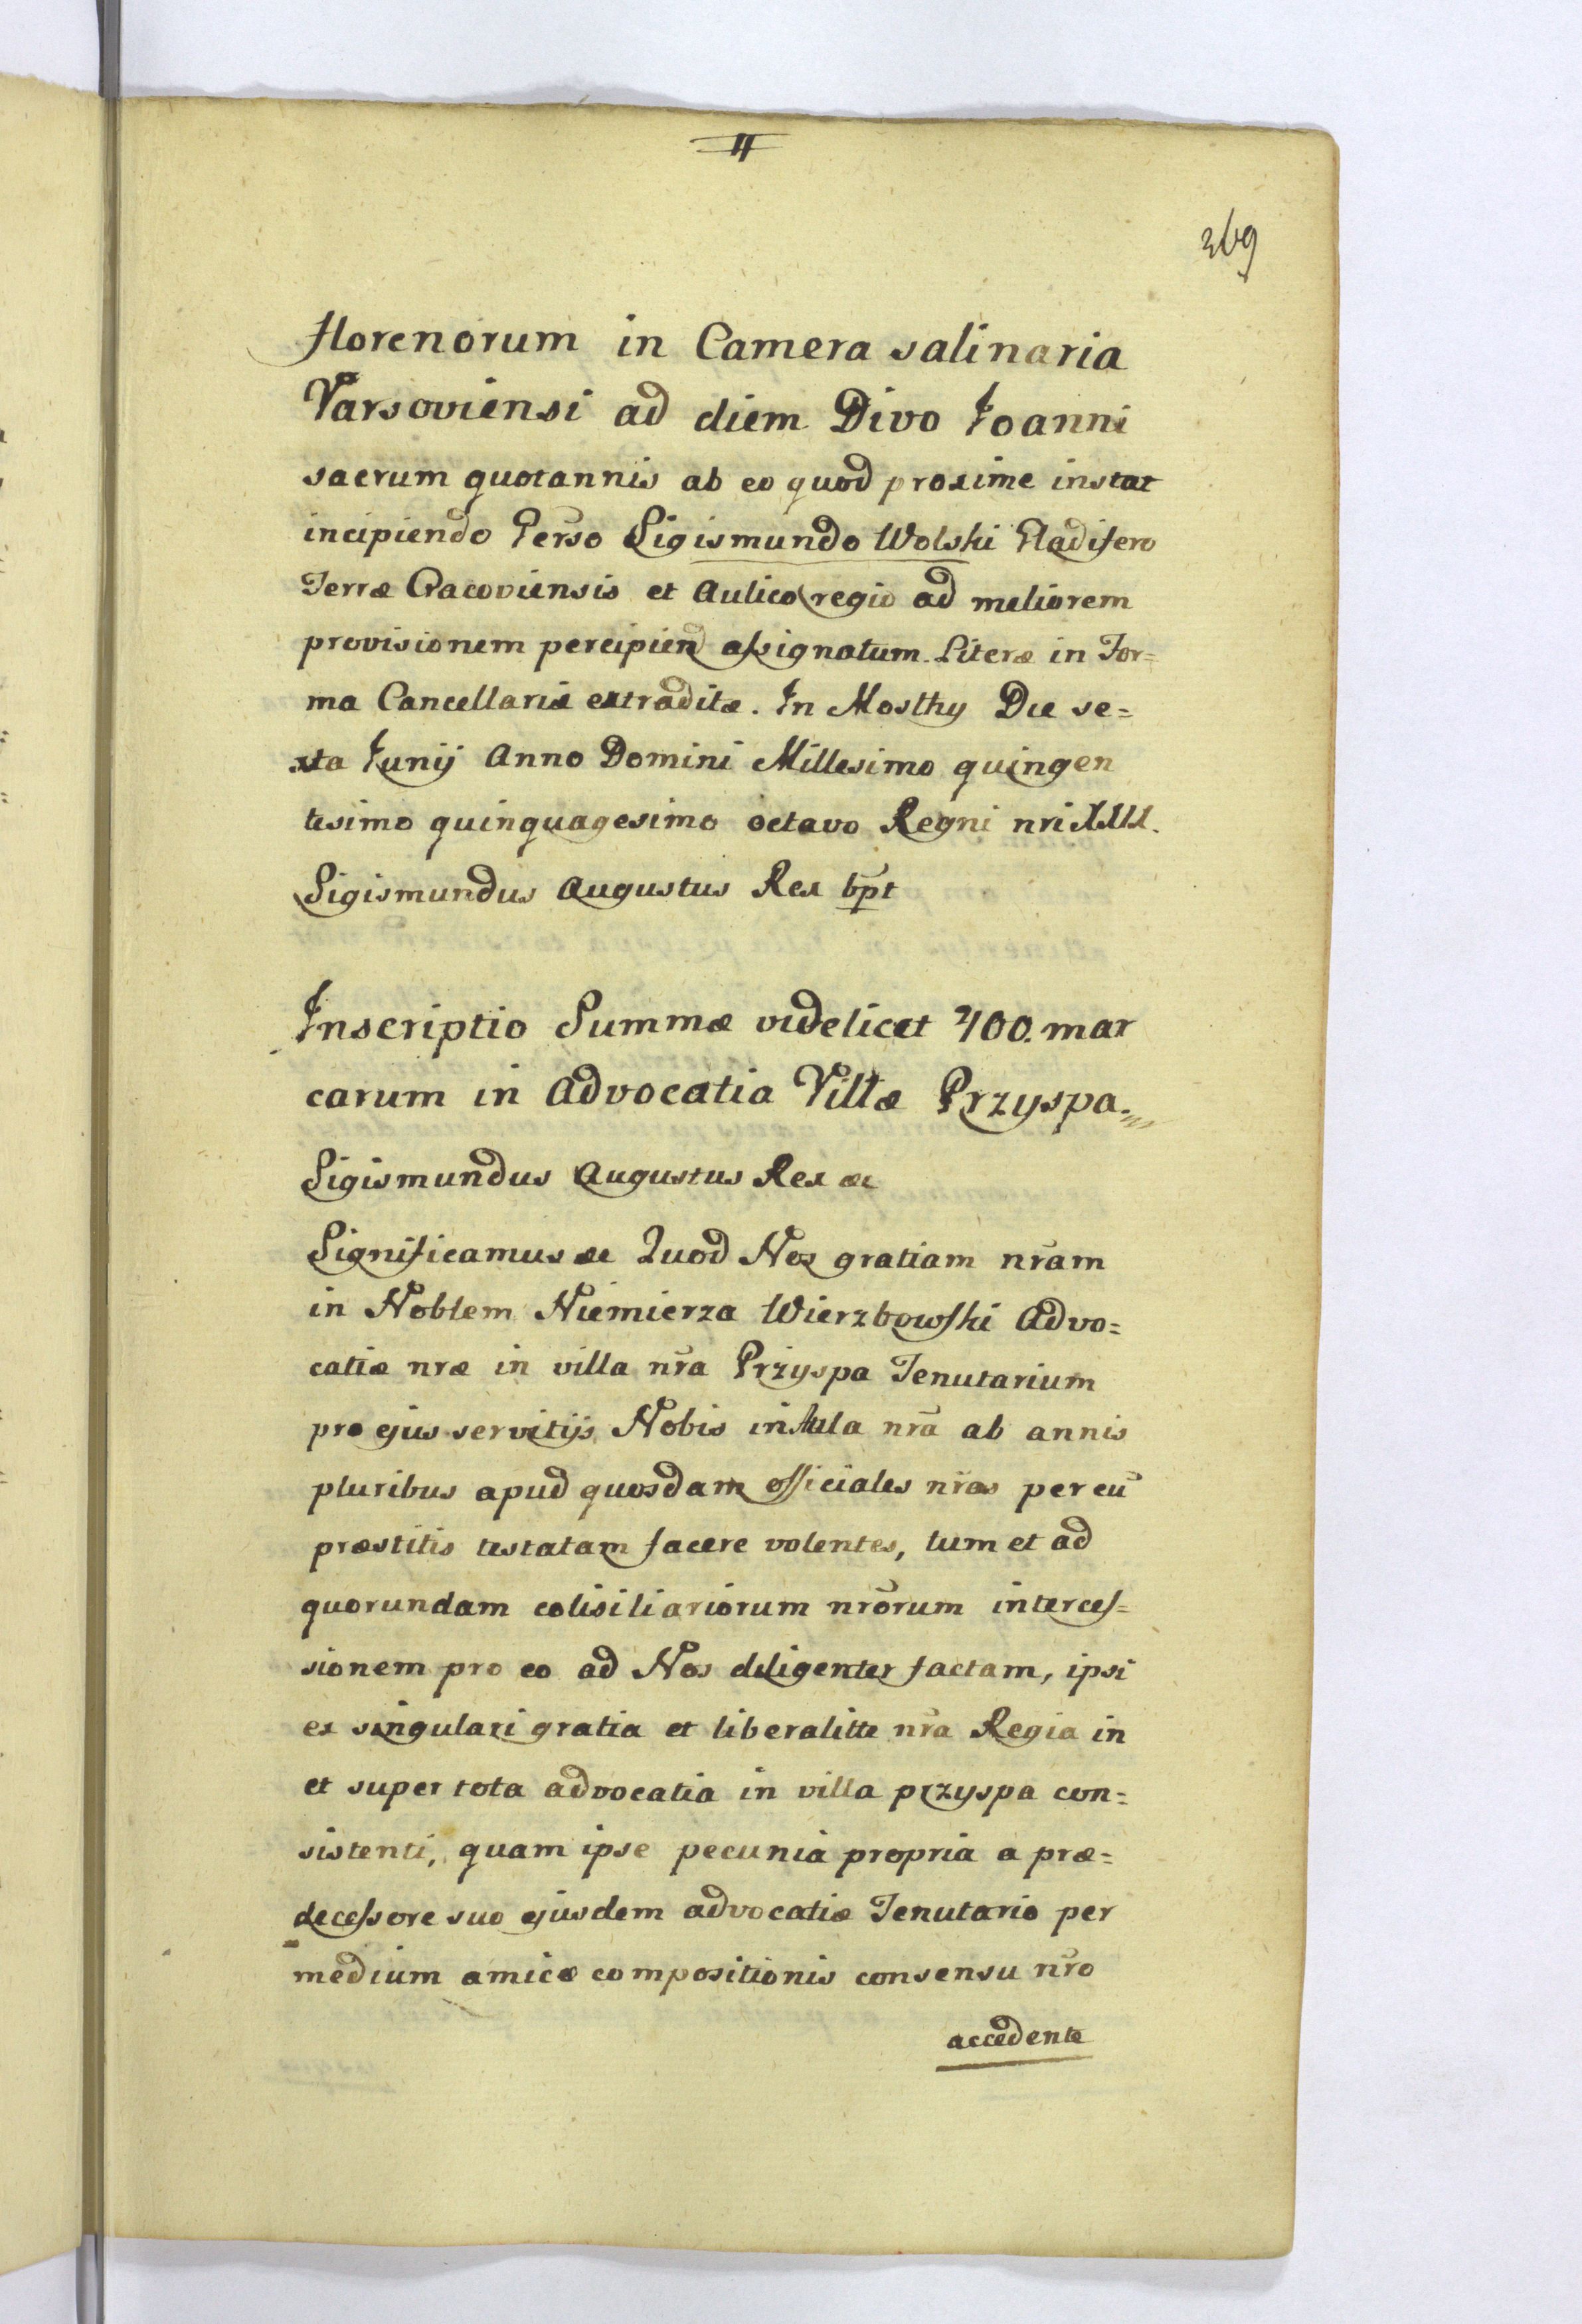 II
369
florenorum in Camera salinaria
Varsoviensi ad diem Divo Joanni
sacrum quotannis ab eo quod proxime instat
incipiendo Gerso Sigismundo Wolski Gladifero
Terræ Cracoviensis et Aulico regio ad meliorem
provisionem percipiend assignatum. Literæ in For=
ma Cancellariæ extraditæ. In Mosthy Die se=
xta Junij Anno Domini Millesimo quingen
tesimo quinquagesimo octavo Regni nri XXIX.
Sigismundus Augustus Rex spt
Inscriptio Summæ videlicet 400. mar
carum in Advocatia Villæ Przyspa.
Sigismundus Augustus Rex &c
Significamus &c Quod Nos gratiam nram
in Noblem Niemierza Wierzbowski Advo=
catiæ nræ in villa nra Przyspa Tenutarium
pro ejus servitijs Nobis in Aula nra ab annis
pluribus apud quosdam officiales nros per eu
præstitis testatam facere volentes, tum et ad
quorundam colisiliariorum nrorum interces=
sionem pro eo ad Nos diligenter factam, ipsi
ex singulari gratia et liberalitte nra Regia in
et super tota advocatia in villa przyspa con=
sistenti, quam ipse pecunia propria a præ=
decessore suo ejusdem advocatiæ Tenutario per
medium amicæ compositionis consensu nro
accedente